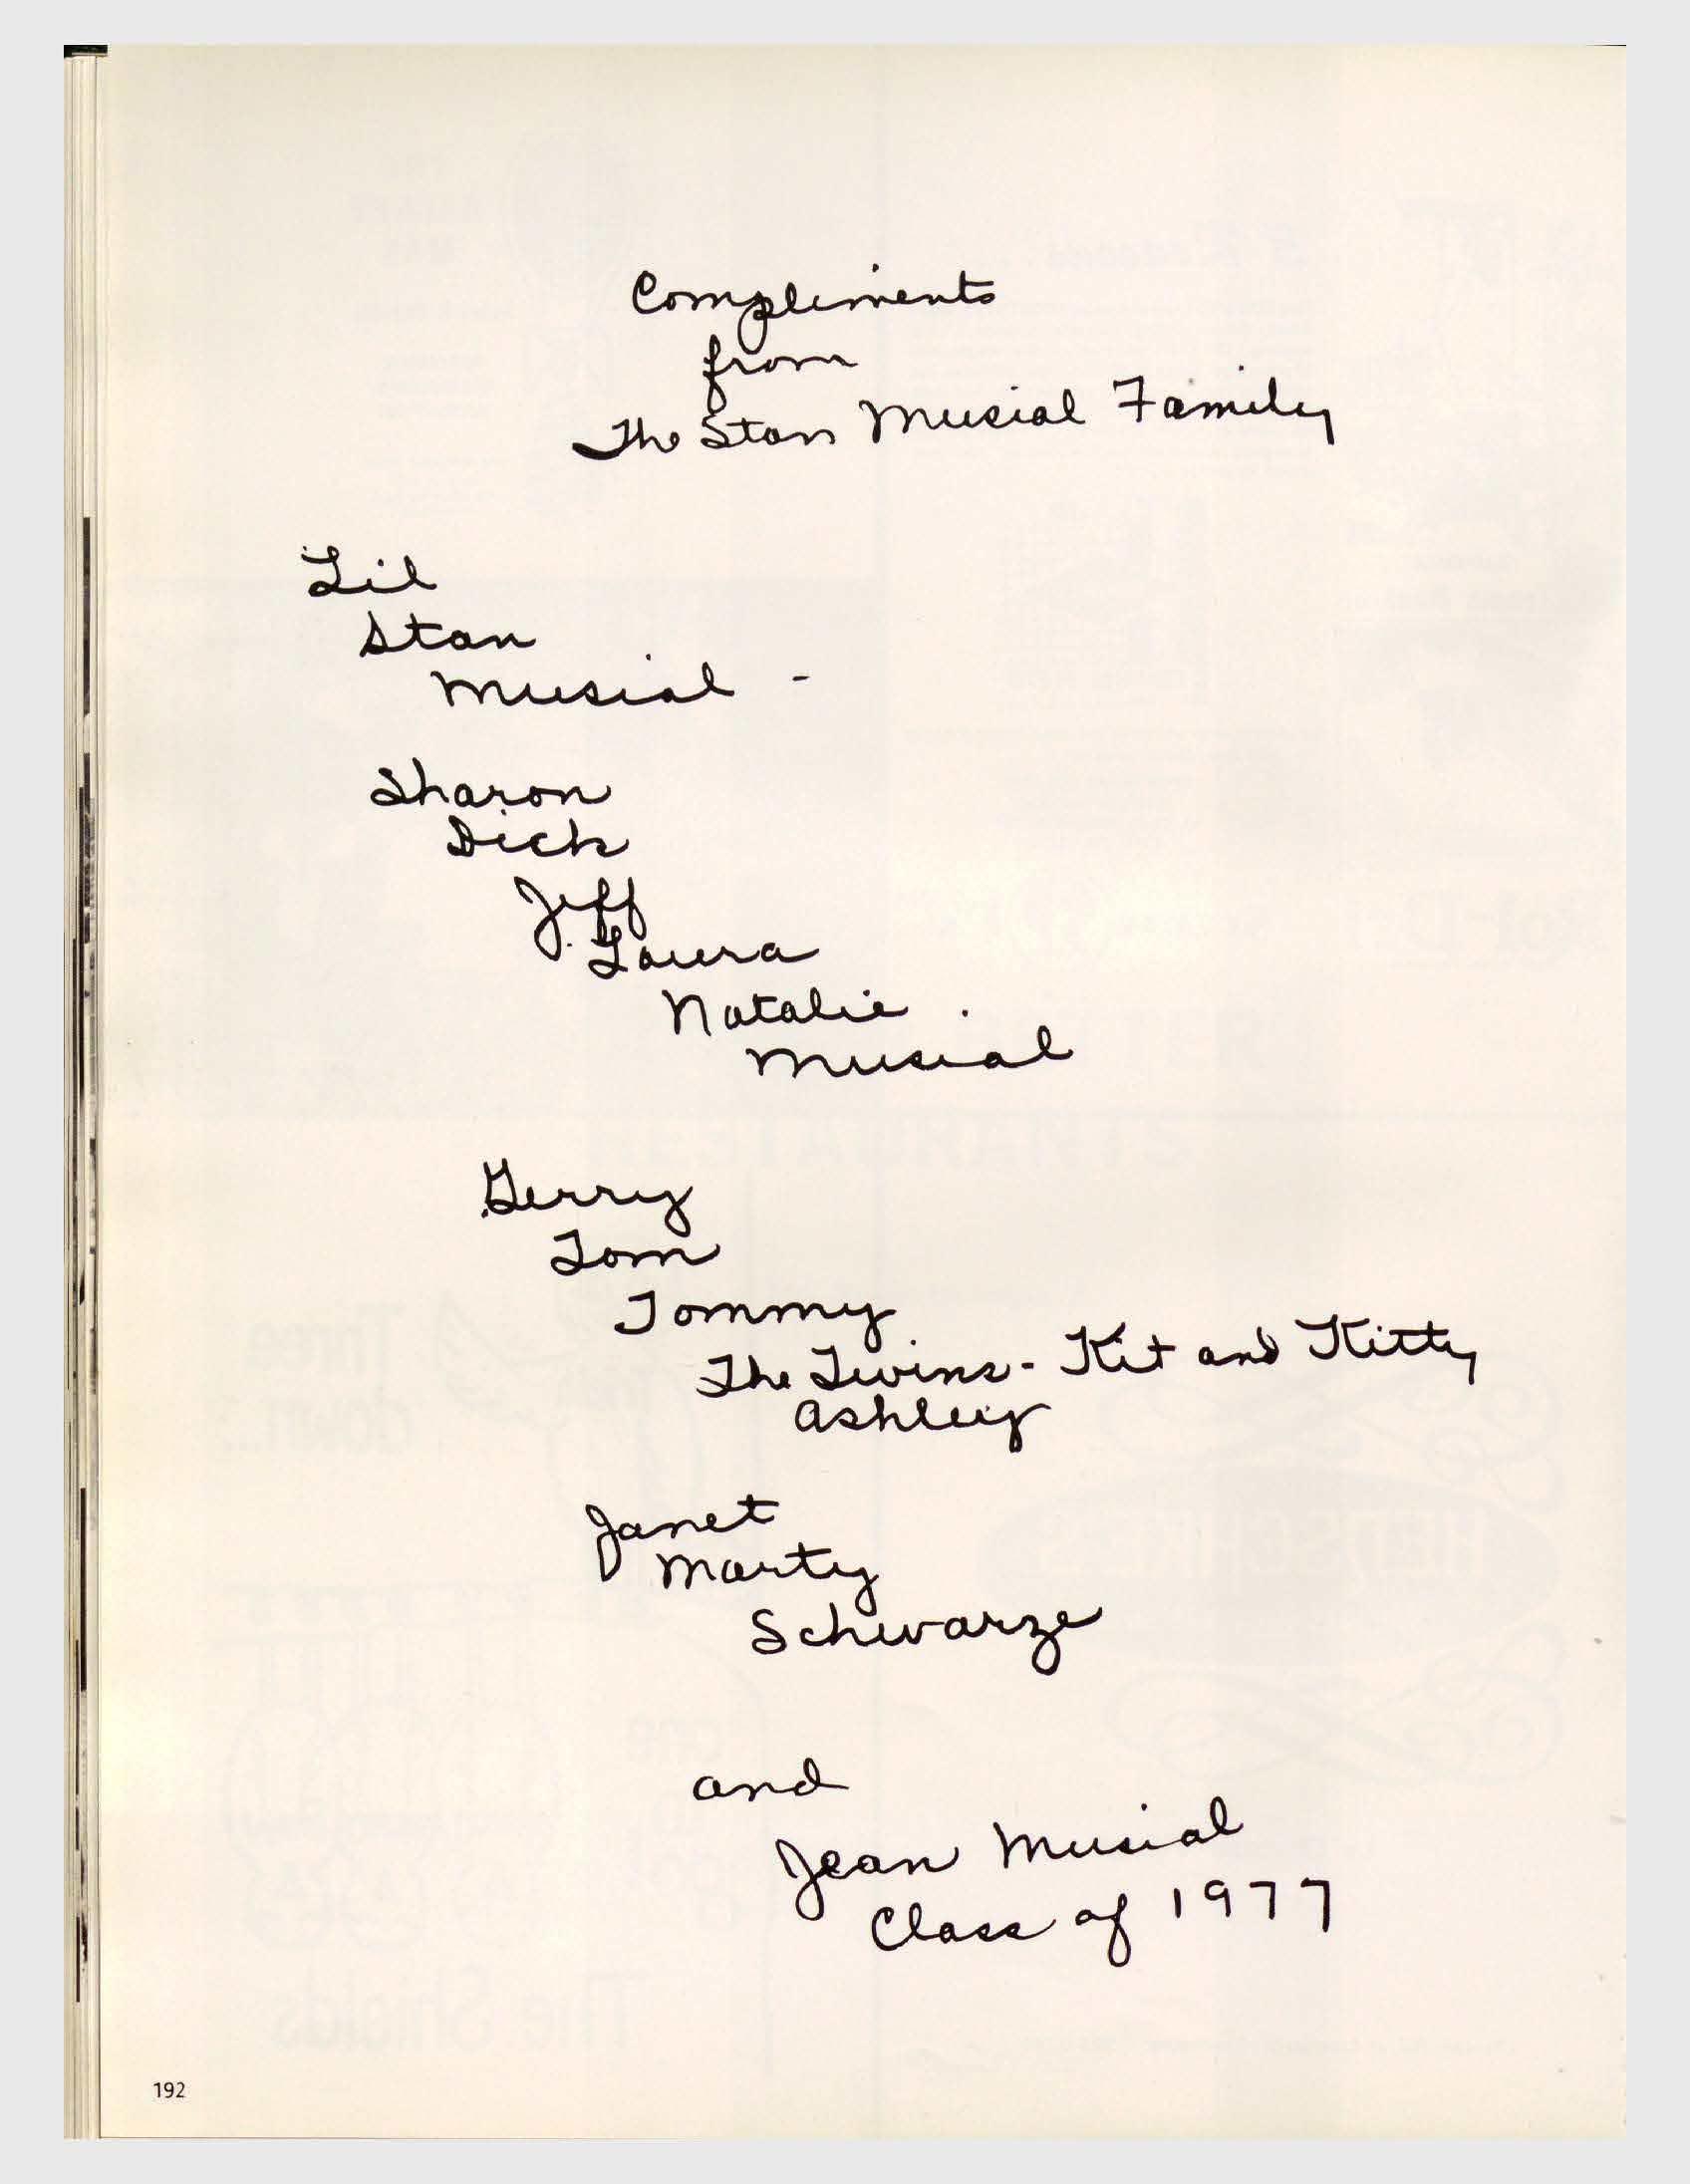 Compliments
from
The Stan Musial Family
Lil
Stan
Musial -
Sharon
Dick
Jeff
Laura
Natalie
Musial
Gerry
Tom
Tommy
The Twins - Kit and Kitty
Ashley
Janet
Marty
Schwarze
and
Jean Musial
Class of 1977
192